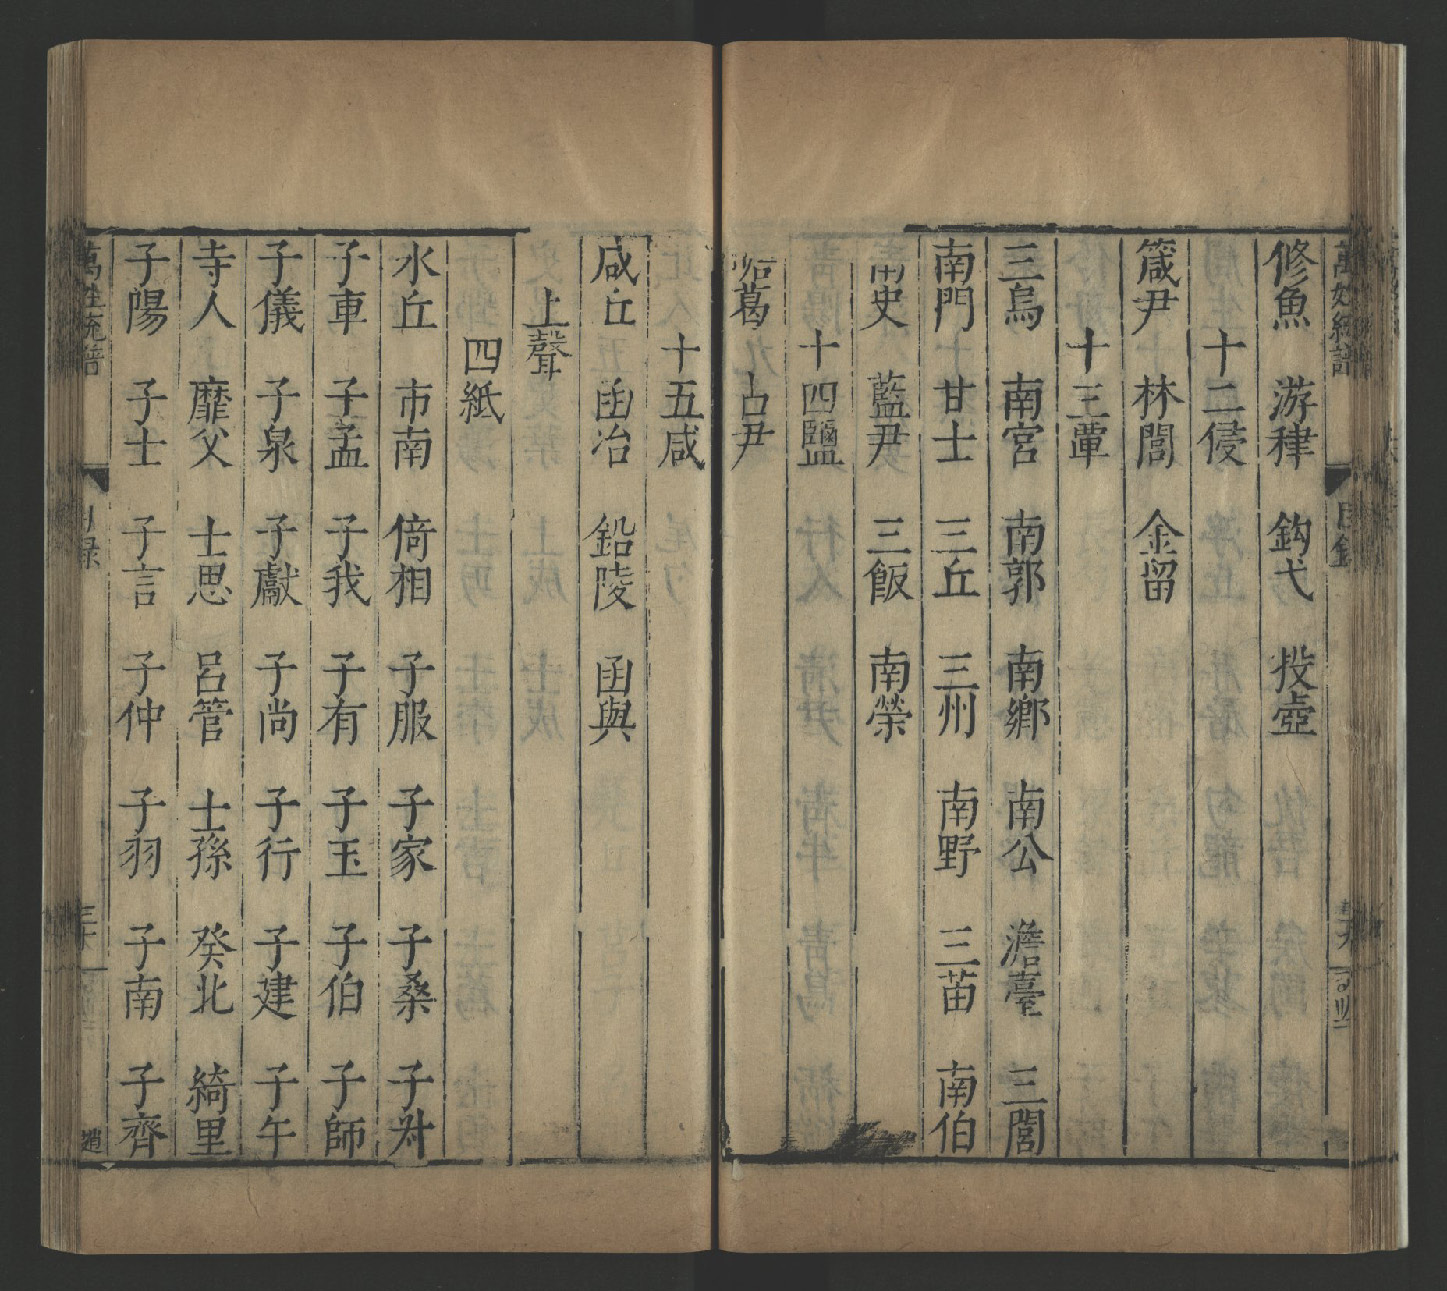 修魚 游稚 鈎弋 投壺
十二侵
箴尹 林閭 金留
十三覃
三烏 南宮 南郭 南鄉 南公 澹臺 三閭
南門 甘士 三丘 三州 南野 三苗 南伯
南史 藍尹 三飯 南榮
十四鹽
葛 占尹
十五咸
咸丘 函冶 鉛陵 函與
上聲
四紙
水丘 市南 倚相 子服 子家 子桑
子車 子孟 子我 子有 子玉 子伯 子師
子儀 子泉 子獻 子尚 子行 子建 子午
寺人 靡父 士思 呂管 士孫 癸北 綺里
子陽 子士 子言 子仲 子羽 子南 子齊
萬姓統譜 目録